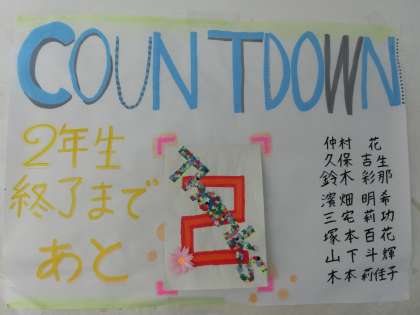 COUNTDOWN
2年生
終了まで
あと
2
仲村 花
久保 吉生
鈴木 彩那
濱畑 明希
三宅 莉功
塚本 百花
山下 斗輝
木本 莉佳子